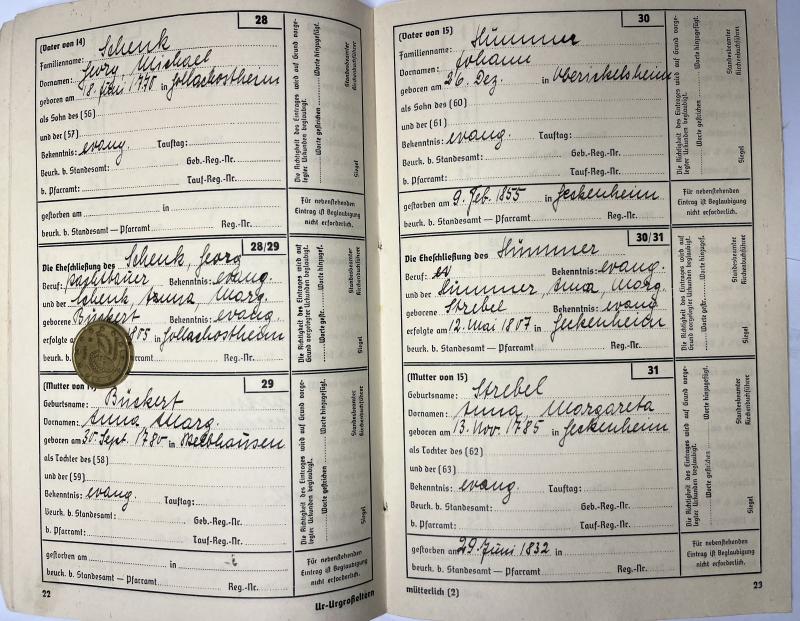 28
(Vater von 14)
Familienname: Schenk
Vornamen: Georg, Michael
geboren am 18. 1770 in Gollachostheim
als Sohn des (56)
und der (57)
Bekenntnis: evang. Tauftag:
Beurk. b. Standesamt: Geb.-Reg.-Nr.
b. Pfarramt: Tauf-Reg.-Nr.
gestorben am in
beurk. b. Standesamt — Pfarramt Reg.-Nr.
Die Richtigkeit des Eintrages wird auf Grund vorge-
legter Urkunden beglaubigt.
Worte gestrichen Worte hinzugefügt.
Siegel Standesbeamter
Kirchenbuchführer
Für nebenstehenden
Eintrag ist Beglaubigung
nicht erforderlich.
28/29
Die Eheschließung des Schenk, Georg
Beruf: Bekenntnis: evang.
und der Schenk, Anna, Marg.
geborene Bückert Bekenntnis: evang.
erfolgte in Gollachostheim
beurk. b. Reg.-Nr.
Die Richtigkeit des Eintrages wird auf
Grund vorgelegter Urkunden beglaubigt.
Worte gestr. Worte hinzugef.
Siegel Standesbeamter
Kirchenbuchführer
29
(Mutter von
Geburtsname: Bückert
Vornamen: Anna, Marg.
geboren am 30. Sept. 1780 in
als Tochter des (58)
und der (59)
Bekenntnis: evang. Tauftag:
Beurk. b. Standesamt: Geb.-Reg.-Nr.
b. Pfarramt: Tauf-Reg.-Nr.
gestorben am in
beurk. b. Standesamt — Pfarramt Reg.-Nr.
Die Richtigkeit des Eintrages wird auf Grund vorge-
legter Urkunden beglaubigt.
Worte gestrichen Worte hinzugefügt.
Siegel Standesbeamter
Kirchenbuchführer
Für nebenstehenden
Eintrag ist Beglaubigung
nicht erforderlich.
22
Ur-Urgroßeltern
30
(Vater von 15)
Familienname: Hümmer
Vornamen: Johann
geboren am 26. Dez. in Oberickelsheim
als Sohn des (60)
und der (61)
Bekenntnis: evang. Tauftag:
Beurk. b. Standesamt: Geb.-Reg.-Nr.
b. Pfarramt: Tauf-Reg.-Nr.
gestorben am 9. Feb. 1855 in Geckenheim
beurk. b. Standesamt — Pfarramt Reg.-Nr.
Die Richtigkeit des Eintrages wird auf Grund vorge-
legter Urkunden beglaubigt.
Worte gestrichen Worte hinzugefügt.
Siegel Standesbeamter
Kirchenbuchführer
Für nebenstehenden
Eintrag ist Beglaubigung
nicht erforderlich.
30/31
Die Eheschließung des Hümmer
Beruf: Bekenntnis: evang.
und der Hümmer, Anna, Marg.
geborene Strebel Bekenntnis: evang
erfolgte am 12. Mai 1807 in Geckenheim
beurk. b. Standesamt — Pfarramt Reg.-Nr.
Die Richtigkeit des Eintrages wird auf
Grund vorgelegter Urkunden beglaubigt.
Worte gestr. Worte hinzugef.
Siegel Standesbeamter
Kirchenbuchführer
31
(Mutter von 15)
Geburtsname: Strebel
Vornamen: Anna, Margareta
geboren am 13. Nov. 1785 in Geckenheim
als Tochter des (62)
und der (63)
Bekenntnis: evang. Tauftag:
Beurk. b. Standesamt: Geb.-Reg.-Nr.
b. Pfarramt: Tauf-Reg.-Nr.
gestorben am 29. Juni 1832 in
beurk. b. Standesamt — Pfarramt Reg.-Nr.
Die Richtigkeit des Eintrages wird auf Grund vorge-
legter Urkunden beglaubigt.
Worte gestrichen Worte hinzugefügt.
Siegel Standesbeamter
Kirchenbuchführer
Für nebenstehenden
Eintrag ist Beglaubigung
nicht erforderlich.
mütterlich (2)
23